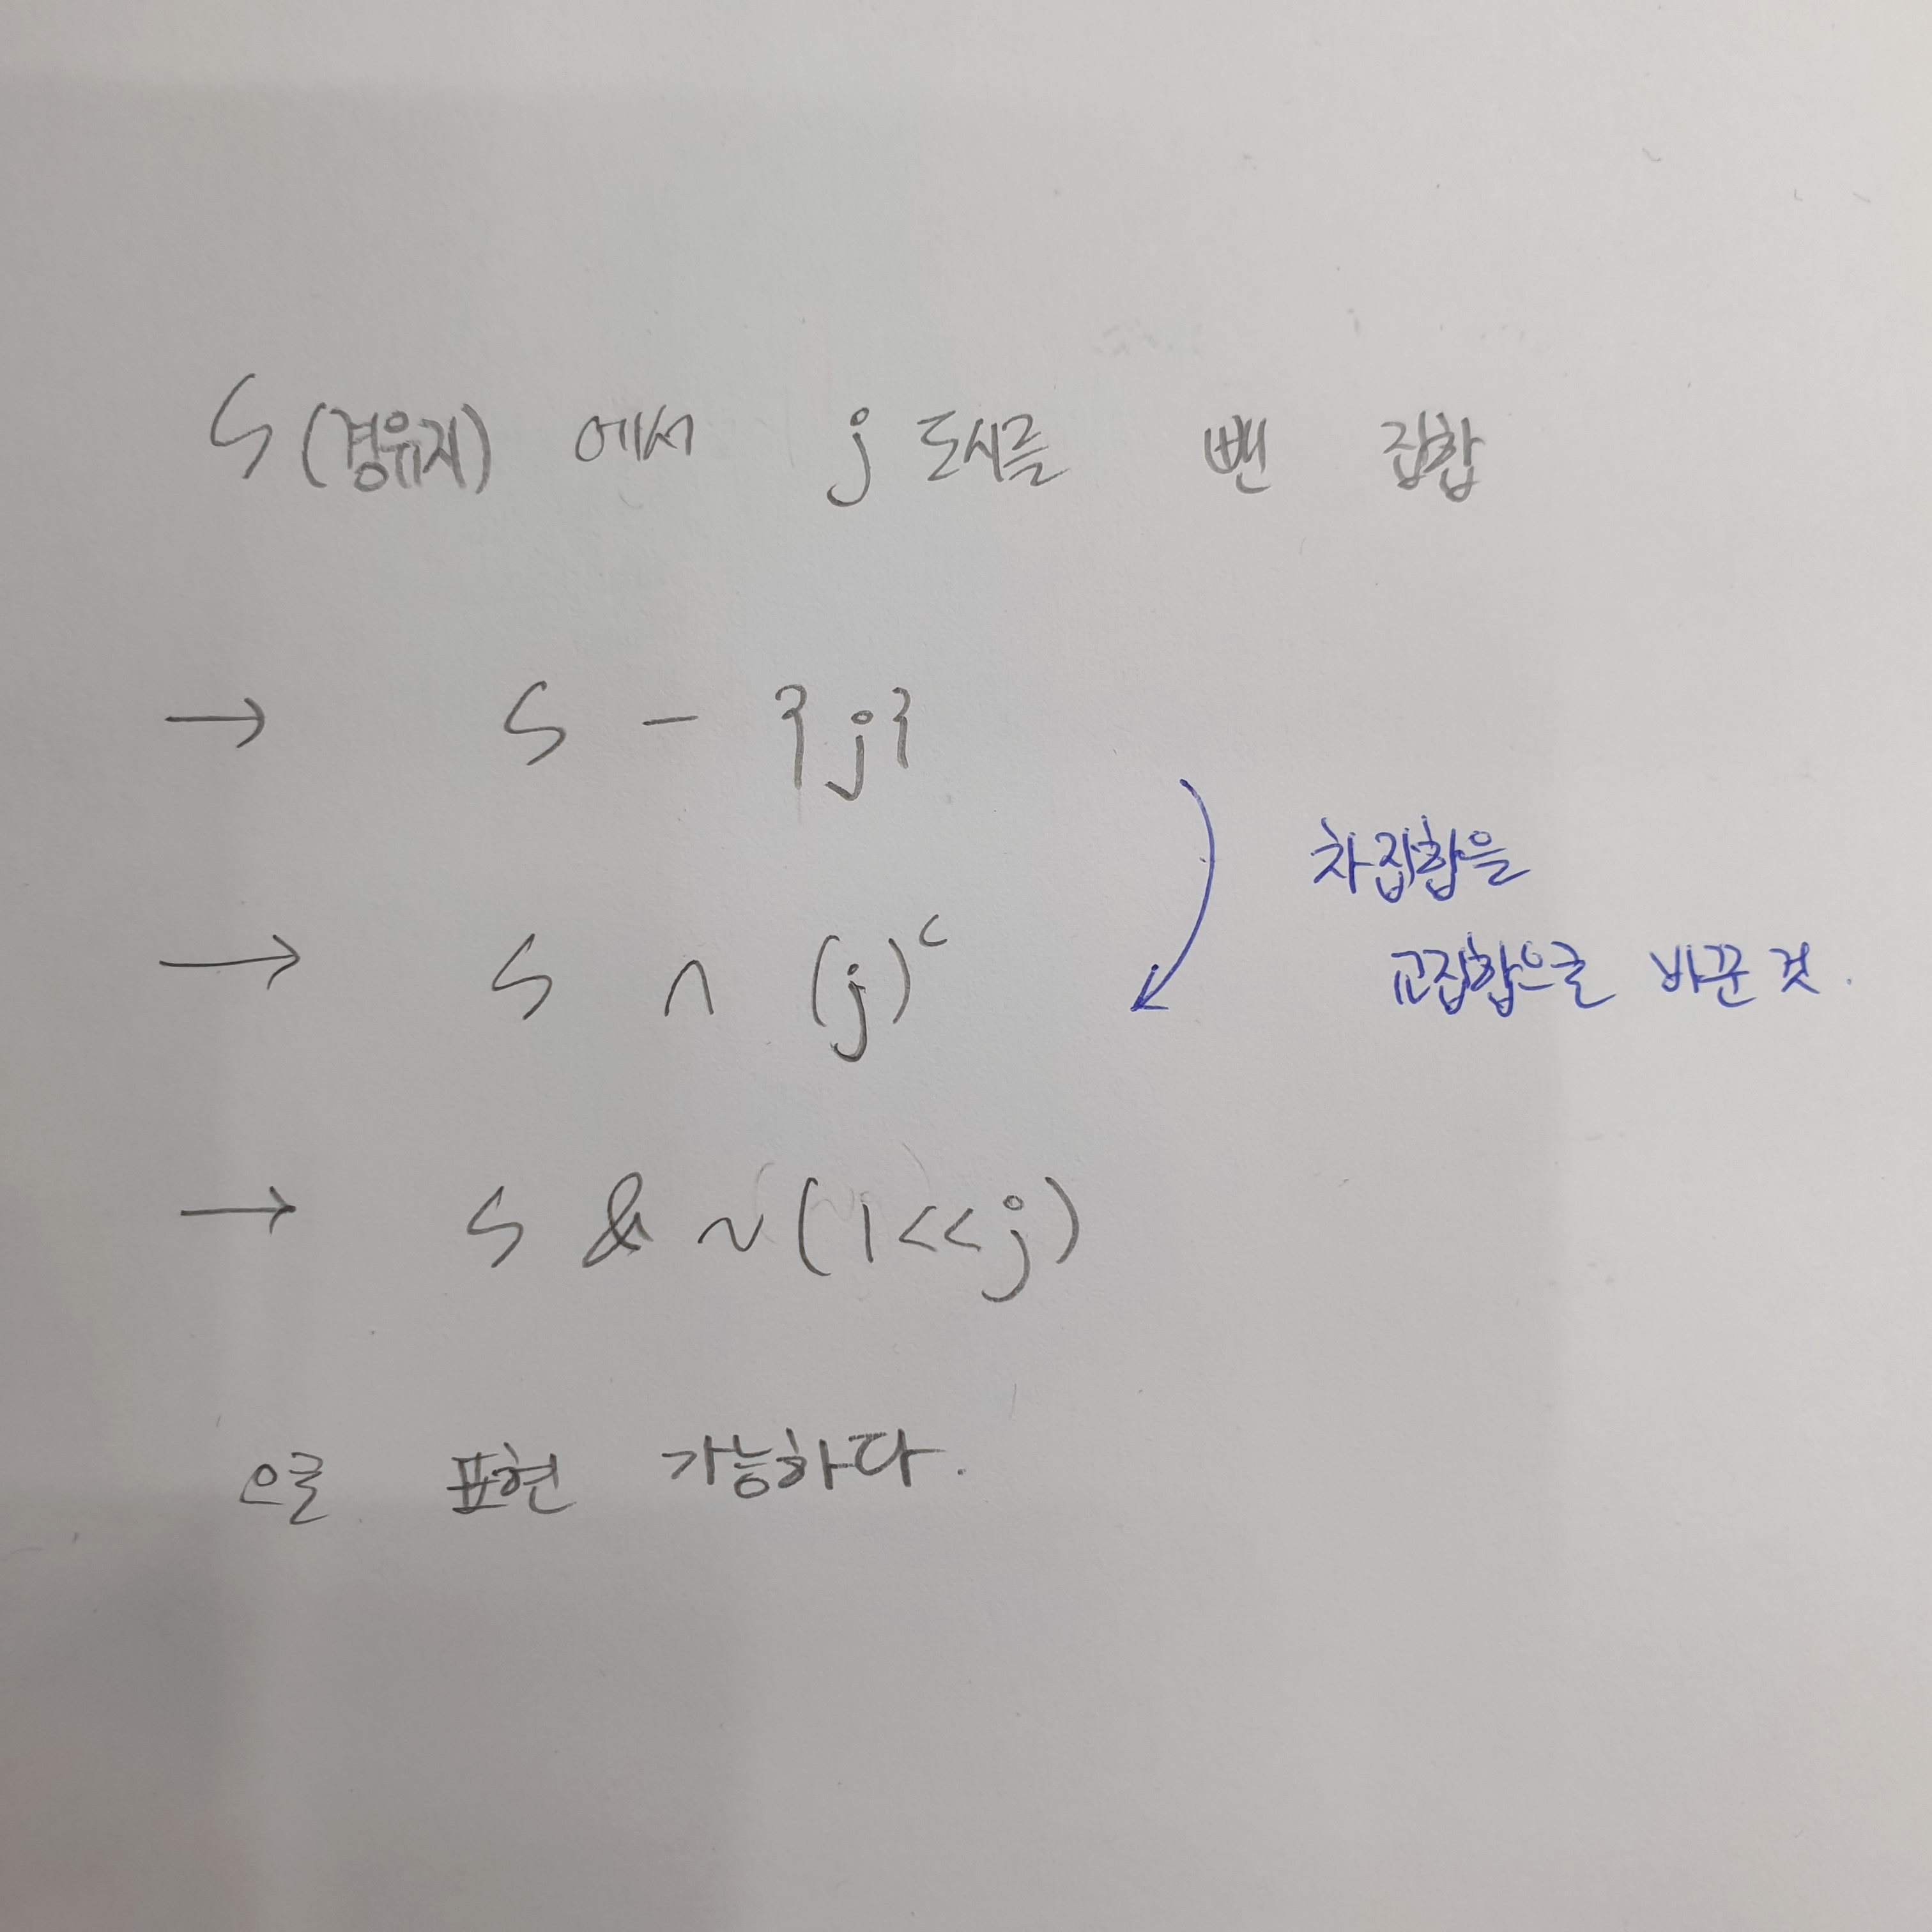 S(경유지) 에서 j 도시를 뺀 집합
→ S - {j}
차집합을
교집합으로 바꾼 것.
→ S ∩ (j)ᶜ
→ S & ~(1<<j)
으로 표현 가능하다.